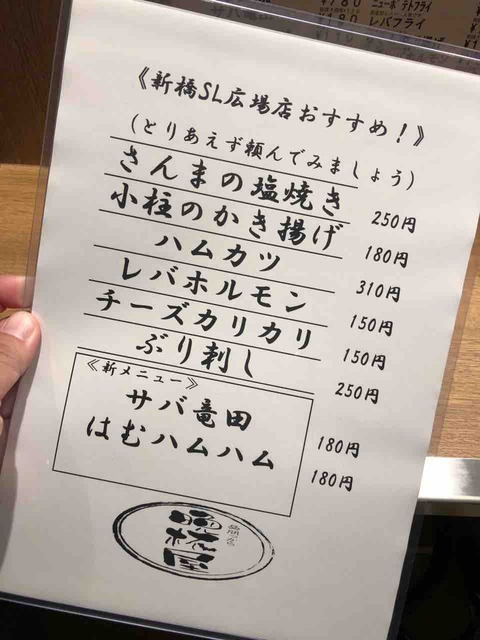 《新橋SL広場店おすすめ!》
(とりあえず頼んでみましょう)
さんまの塩焼き 250円
小柱のかき揚げ 180円
ハムカツ 310円
レバホルモン 150円
チーズカリカリ 150円
ぶり刺し 250円
《新メニュー》
サバ竜田 180円
はむハムハム 180円
¥180
レバフライ